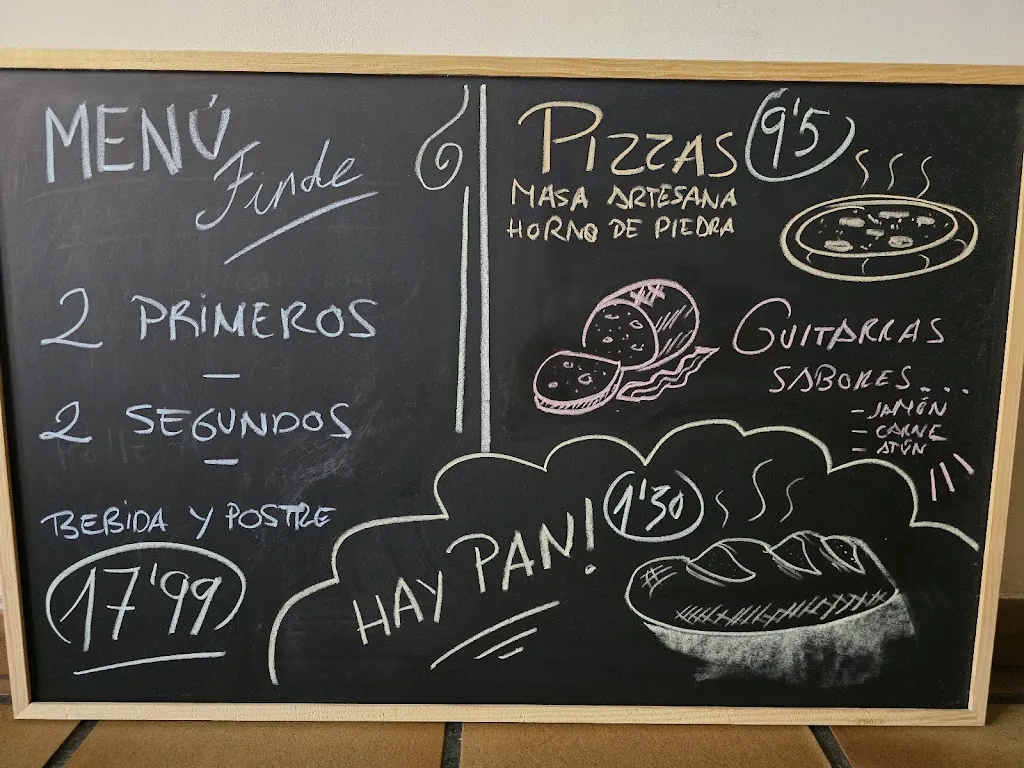 MENÚ
Finde
2 PRIMEROS
-
2 SEGUNDOS
-
BEBIDA Y POSTRE
17'99
PIZZAS 9'5
MASA ARTESANA
HORNO DE PIEDRA
GUITARRAS
SABORES...
- JAMÓN
- CARNE
- ATÚN
HAY PAN! 1'30